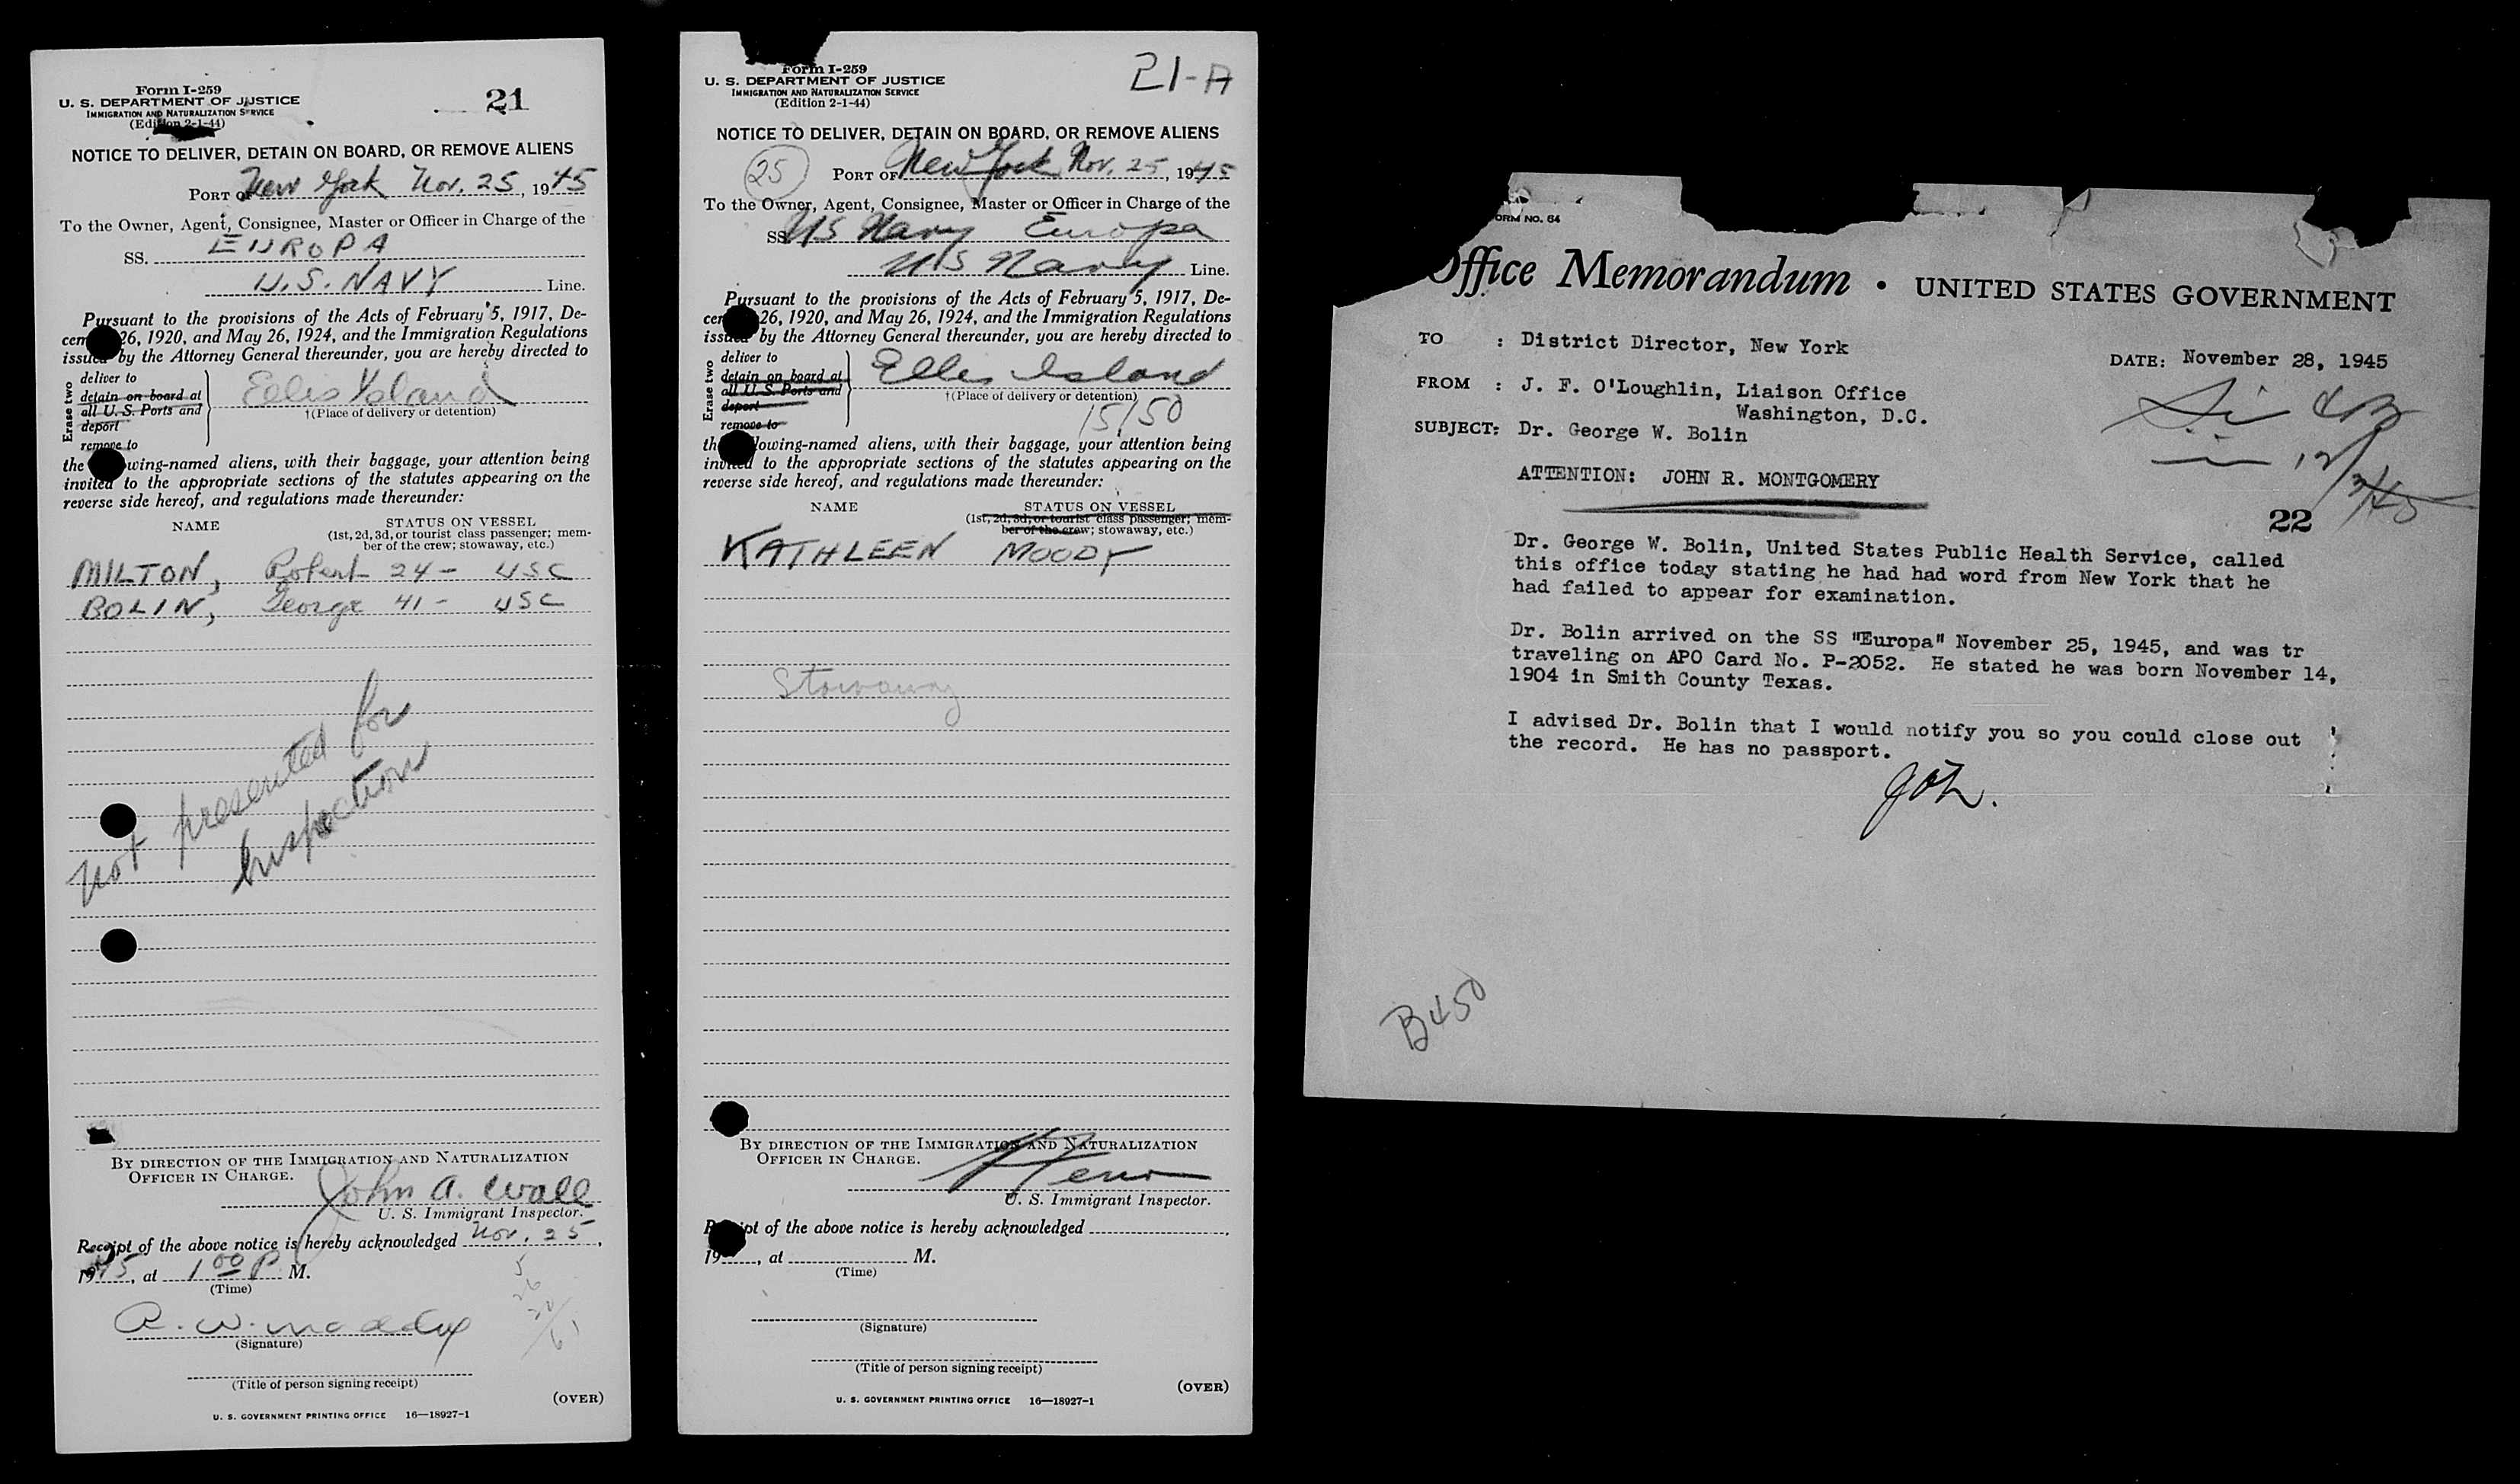 Form I-259
U. S. DEPARTMENT OF JUSTICE
IMMIGRATION AND NATURALIZATION SERVICE
(Edition 2-1-44)
21
NOTICE TO DELIVER, DETAIN ON BOARD, OR REMOVE ALIENS
PORT OF New York Nov. 25, 1945
To the Owner, Agent, Consignee, Master or Officer in Charge of the
SS. EUROPA
U.S. NAVY Line.
Pursuant to the provisions of the Acts of February 5, 1917, De-
cem 26, 1920, and May 26, 1924, and the Immigration Regulations
issued by the Attorney General thereunder, you are hereby directed to
Erase two
deliver to
detain on board at
all U. S. Ports and
deport
remove to
Ellis Island
†(Place of delivery or detention)
the wing-named aliens, with their baggage, your attention being
invited to the appropriate sections of the statutes appearing on the
reverse side hereof, and regulations made thereunder:
NAME STATUS ON VESSEL
(1st, 2d, 3d, or tourist class passenger; mem-
ber of the crew; stowaway, etc.)
MILTON, Robert 24 - USC
BOLIN, George 41 - USC
not presented for
Inspection
BY DIRECTION OF THE IMMIGRATION AND NATURALIZATION
OFFICER IN CHARGE.
John A. Wall
U. S. Immigrant Inspector.
Receipt of the above notice is hereby acknowledged Nov. 25,
1945, at 1 00 P. M.
(Time)
5
26
30
61
(Signature)
(Title of person signing receipt)
(OVER)
U. S. GOVERNMENT PRINTING OFFICE 16—18927-1
Form I-259
U. S. DEPARTMENT OF JUSTICE
IMMIGRATION AND NATURALIZATION SERVICE
(Edition 2-1-44)
21-A
NOTICE TO DELIVER, DETAIN ON BOARD, OR REMOVE ALIENS
25
PORT OF New York Nov. 25, 1945
To the Owner, Agent, Consignee, Master or Officer in Charge of the
SS US Navy Europa
US Navy Line.
Pursuant to the provisions of the Acts of February 5, 1917, De-
cem 26, 1920, and May 26, 1924, and the Immigration Regulations
issued by the Attorney General thereunder, you are hereby directed to
Erase two
deliver to
detain on board at
all U. S. Ports and
deport
remove to
Ellis Island
†(Place of delivery or detention)
15/50
the lowing-named aliens, with their baggage, your attention being
invited to the appropriate sections of the statutes appearing on the
reverse side hereof, and regulations made thereunder:
NAME STATUS ON VESSEL
(1st, 2d, 3d, or tourist class passenger; mem-
ber of the crew; stowaway, etc.)
KATHLEEN MOODY
Stowaway
BY DIRECTION OF THE IMMIGRATION AND NATURALIZATION
OFFICER IN CHARGE.
U. S. Immigrant Inspector.
Receipt of the above notice is hereby acknowledged
19, at M.
(Time)
(Signature)
(Title of person signing receipt)
(OVER)
U. S. GOVERNMENT PRINTING OFFICE 16—18927-1
FORM NO. 64
Office Memorandum • UNITED STATES GOVERNMENT
TO : District Director, New York
DATE: November 28, 1945
FROM : J. F. O'Loughlin, Liaison Office
Washington, D.C.
SUBJECT: Dr. George W. Bolin
ATTENTION: JOHN R. MONTGOMERY
22
Dr. George W. Bolin, United States Public Health Service, called
this office today stating he had had word from New York that he
had failed to appear for examination.
Dr. Bolin arrived on the SS "Europa" November 25, 1945, and was tr
traveling on APO Card No. P-2052. He stated he was born November 14,
1904 in Smith County Texas.
I advised Dr. Bolin that I would notify you so you could close out
the record. He has no passport.
B450